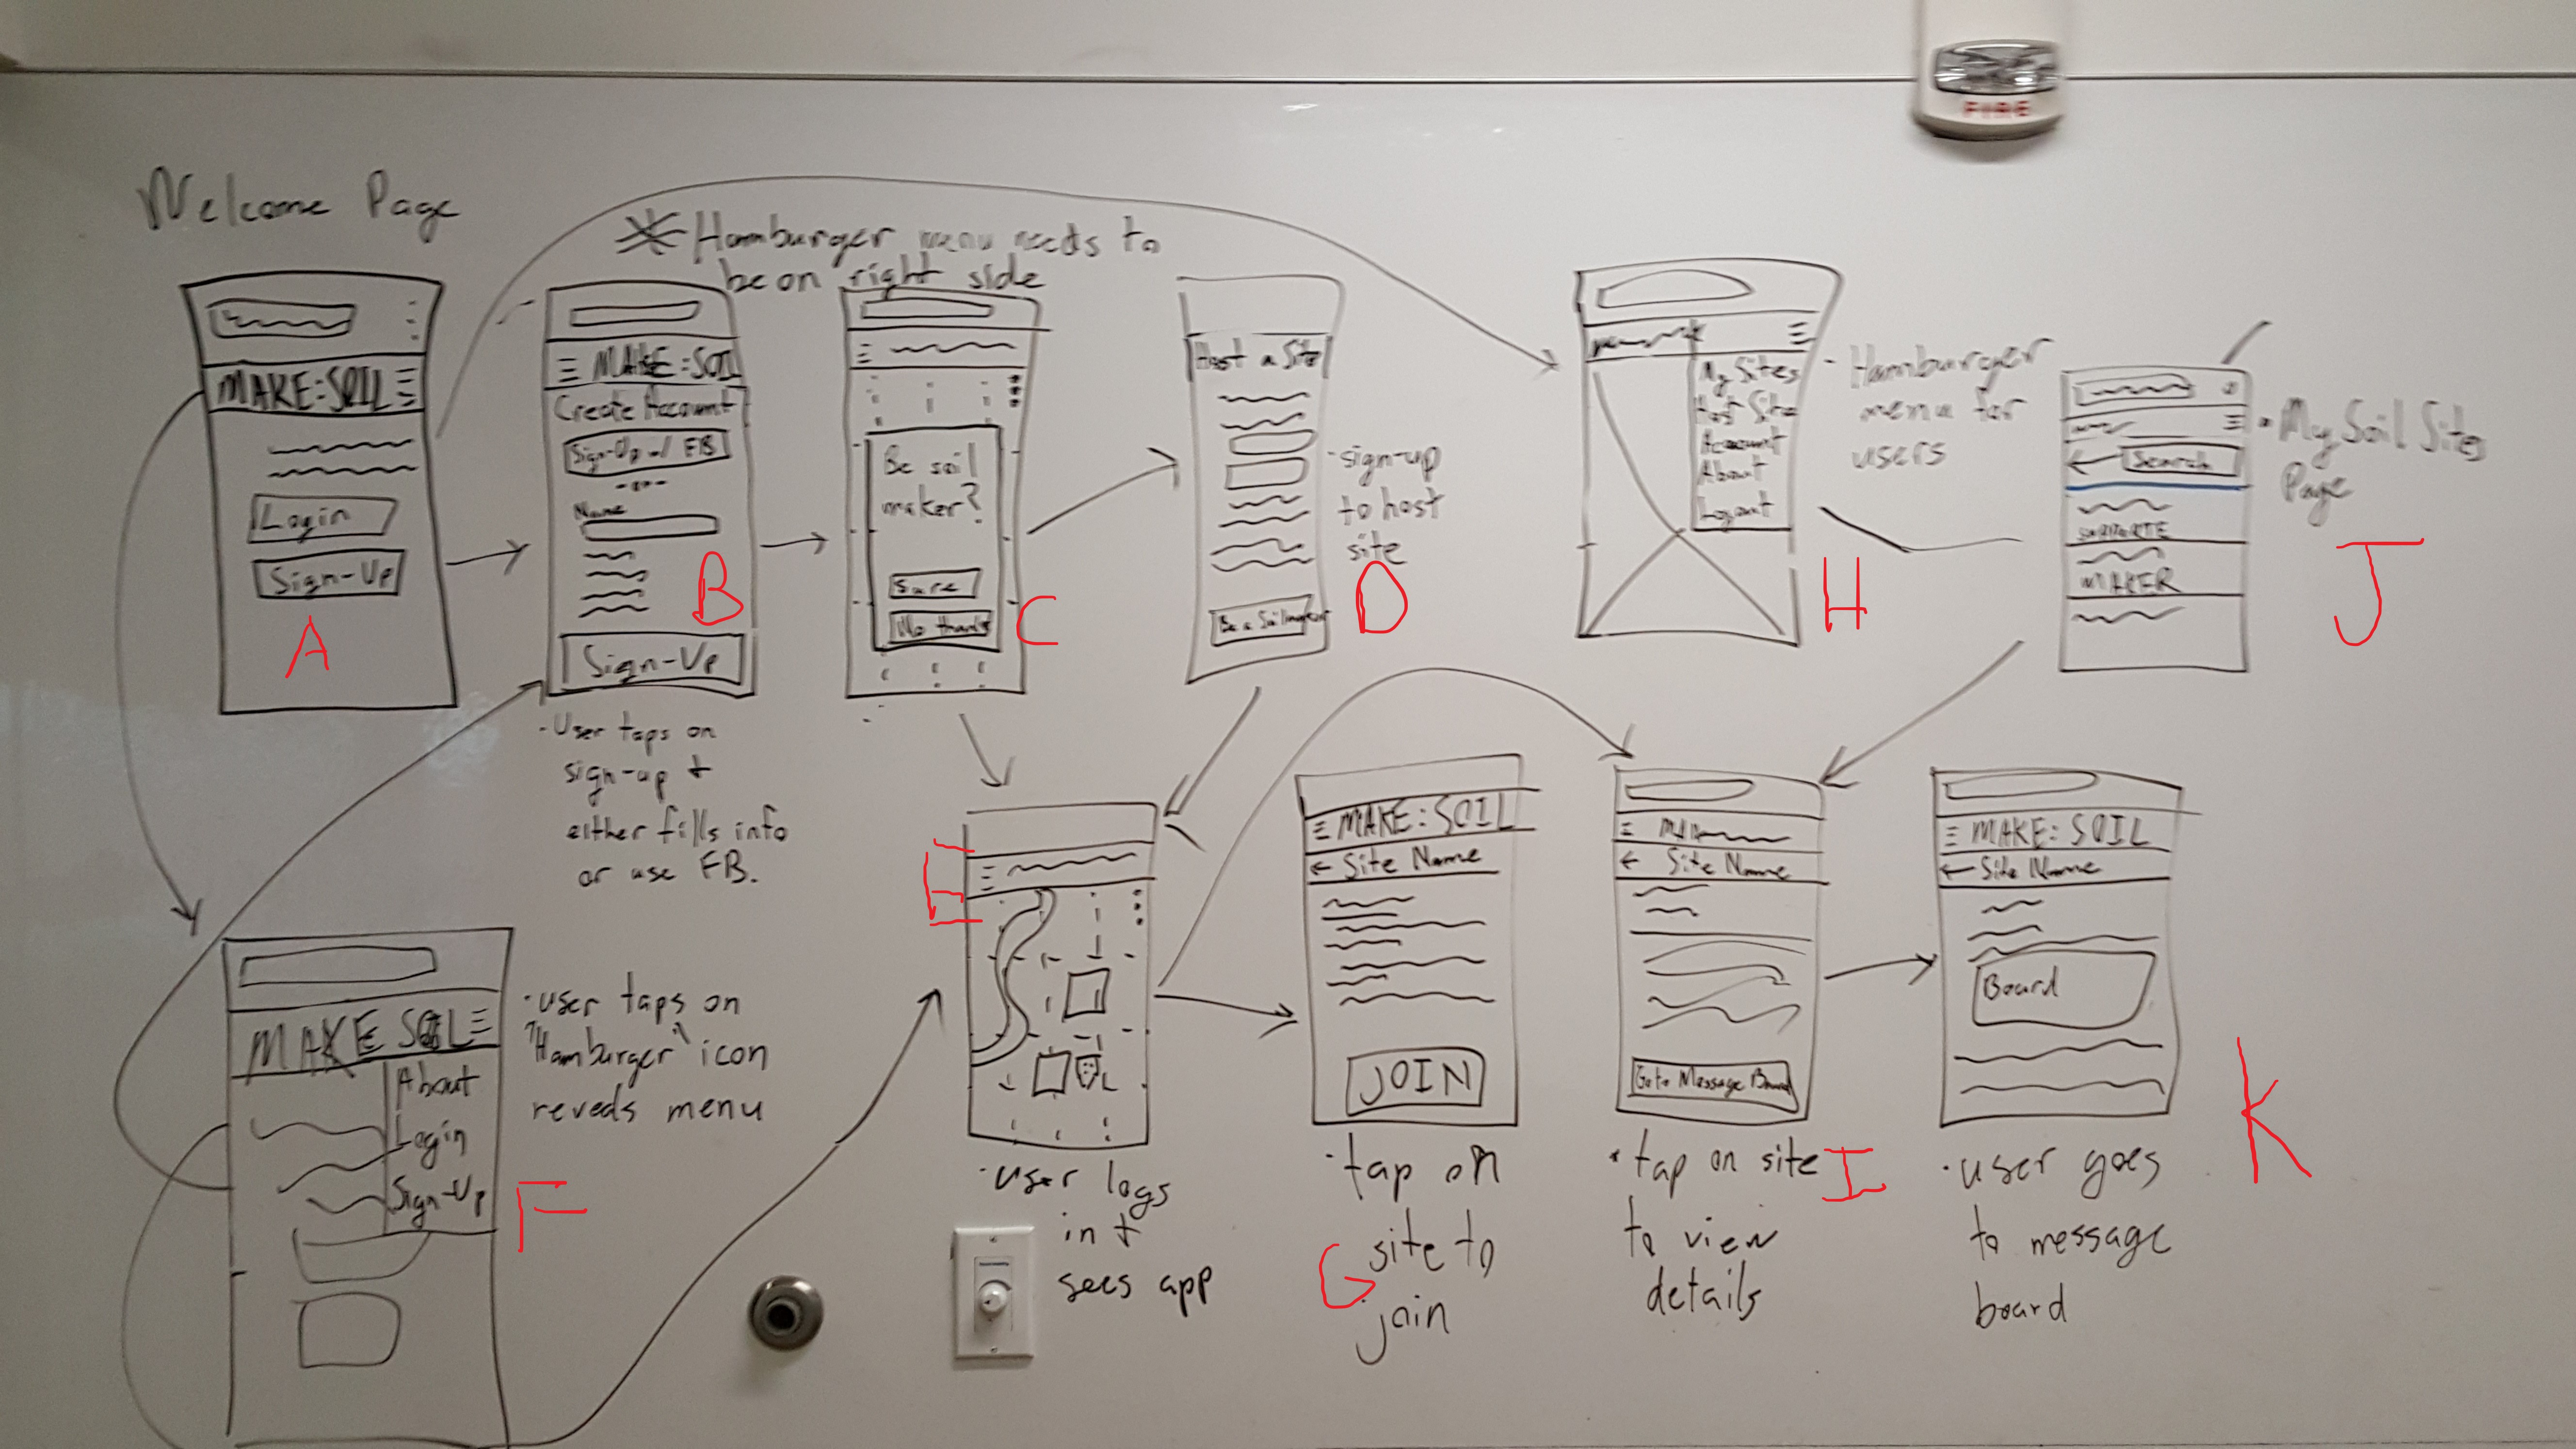 FIRE
Welcome Page
Hamburger menu needs to
be on right side
MAKE:SOIL
Login
Sign-Up
A
MAKE:SOIL
Create Account
Sign-Up w/ FB
or
Name
Sign-Up
B
- User taps on
sign-up +
either fills info
or use FB.
Be soil
maker?
Sure
No thanks
C
Host a Site
Be a Soilmaker
- sign-up
to host
site
D
My Sites
Host Site
Account
About
Logout
- Hamburger
menu for
users
H
Search
MAKER
• My Soil Sites
Page
J
MAKE SOIL
About
Login
Sign-Up
• user taps on
"Hamburger" icon
reveals menu
F
E
• user logs
in +
sees app
MAKE:SOIL
← Site Name
JOIN
• tap on
site to
join
G
← Site Name
Go to Message Board
• tap on site
to view
details
I
MAKE:SOIL
← Site Name
Board
• user goes
to message
board
K